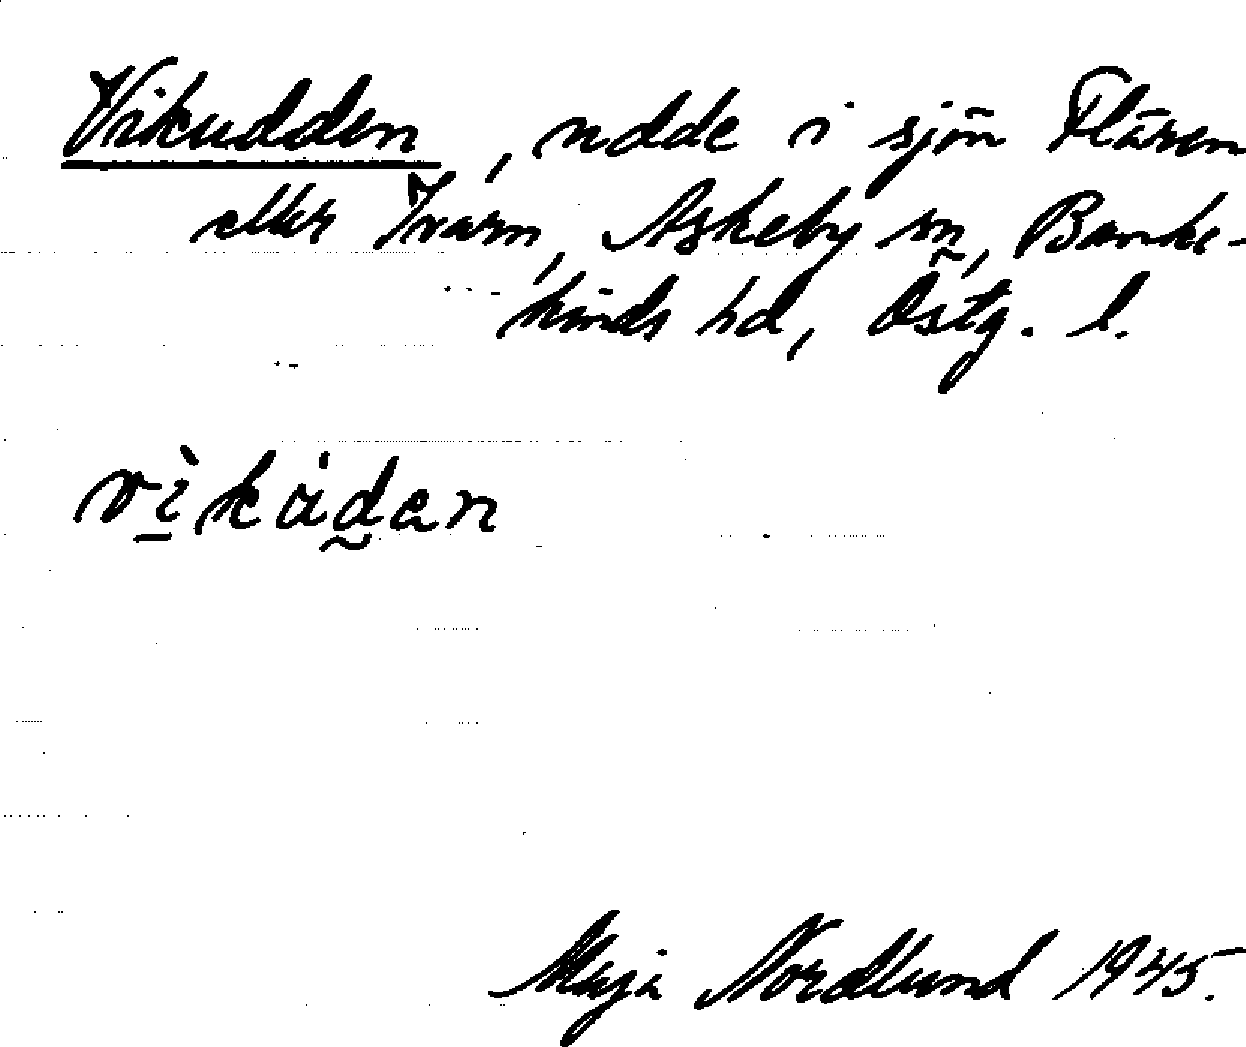 Vikudden, udde i sjön Flären
eller Ivarn, Askeby sn, Banke-
kinds hd, Östg. l.
vìkȧdan
Maja Nordlund 1945.